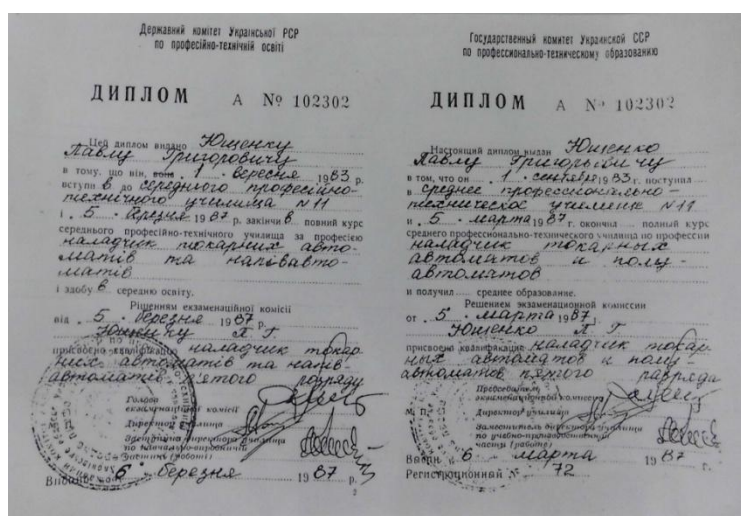 Державний комітет Української РСР
по професійно-технічній освіті
ДИПЛОМ А № 102302
Цей диплом видано Ющенку
Павлу Григоровичу
в тому, що він, вона 1 вересня 1983 р.
вступив до середнього професійно-
технічного училища N 11
і 5 березня 1987 р. закінчив повний курс
середнього професійно-технічного училища за професією
наладчик токарних авто-
матів та напівавто-
матів
і здобув середню освіту.
Рішенням екзаменаційної комісії
від 5 березня 1987 р.
Ющенку П Г
присвоєно кваліфікацію наладчик токар-
них автоматів та напів-
автоматів п'ятого розряду
Голова
екзаменаційної комісії
Директор училища
Заступник директора училища
по навчально-виробничій
частині (роботі)
Видано 6 березня 1987 р.
2
Государственный комитет Украинской ССР
по профессионально-техническому образованию
ДИПЛОМ А № 102302
Настоящий диплом выдан Ющенко
Павлу Григорьевичу
в том, что он 1 сентября 1983 г. поступил
в среднее профессионально-
техническое училище N 11
и 5 марта 1987 г. окончил полный курс
среднего профессионально-технического училища по профессии
наладчик токарных
автоматов и полу-
автоматов
и получил среднее образование.
Решением экзаменационной комиссии
от 5 марта 1987 г.
Ющенко П Г
присвоена квалификация наладчик токар-
ных автоматов и полу-
автоматов пятого разряда
Председатель
экзаменационной комиссии
М. П.
Директор училища
Заместитель директора училища
по учебно-производственной
части (работе)
Выдан 6 марта 1987 г.
Регистрационный № 72